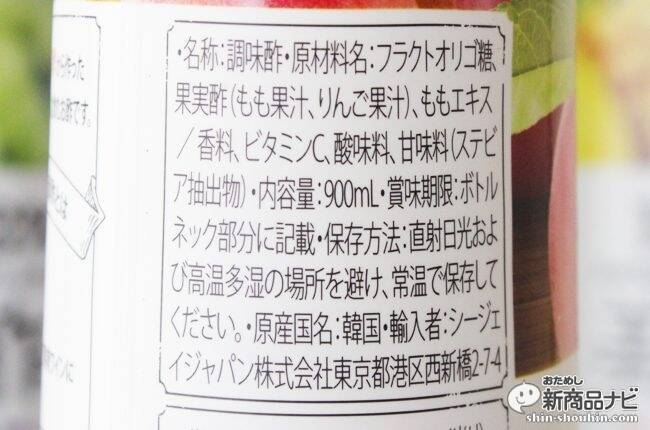 から作った
のお酢です。
とは
ワインに
・名称:調味酢・原材料名:フラクトオリゴ糖、
果実酢(もも果汁、りんご果汁)、ももエキス
/香料、ビタミンC、酸味料、甘味料(ステビ
ア抽出物)・内容量:900mL・賞味期限:ボトル
ネック部分に記載・保存方法:直射日光およ
び高温多湿の場所を避け、常温で保存して
ください。・原産国名:韓国・輸入者:シージェ
イジャパン株式会社東京都港区西新橋2-7-4
おためし
新商品ナビ
shin-shouhin.com